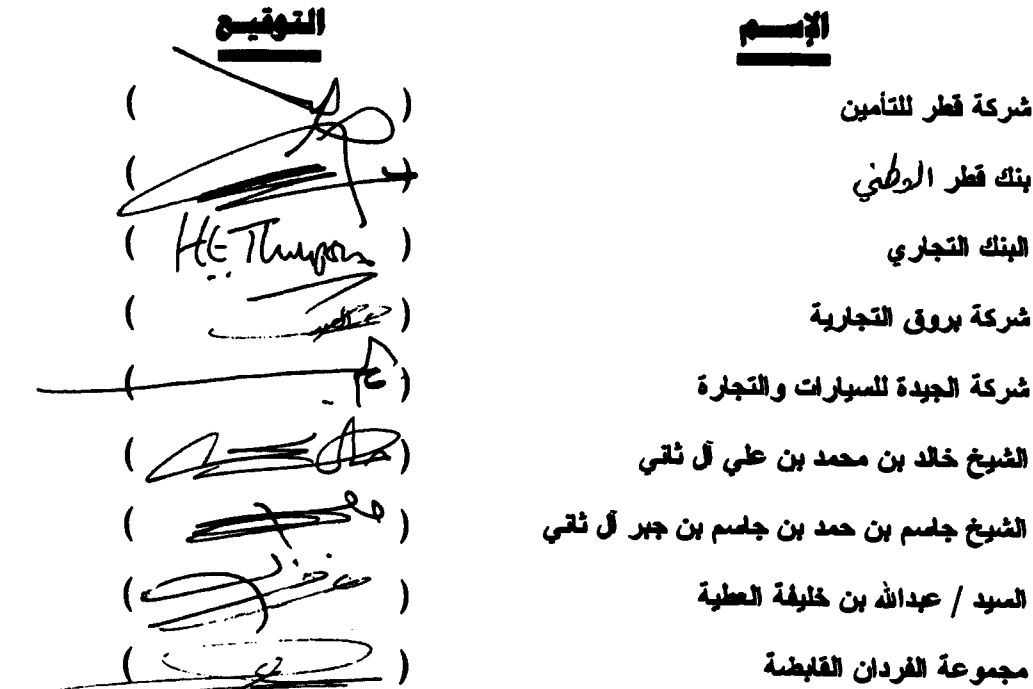 الإســـم التوقيـــع
شركة قطر للتأمين ( )
بنك قطر الوطني ( )
البنك التجاري ( )
شركة بروق التجارية ( )
شركة الجيدة للسيارات والتجارة ( )
الشيخ خالد بن محمد بن علي آل ثاني ( )
الشيخ جاسم بن حمد بن جاسم بن جبر آل ثاني ( )
السيد / عبدالله بن خليفة العطية ( )
مجموعة الفردان القابضة ( )